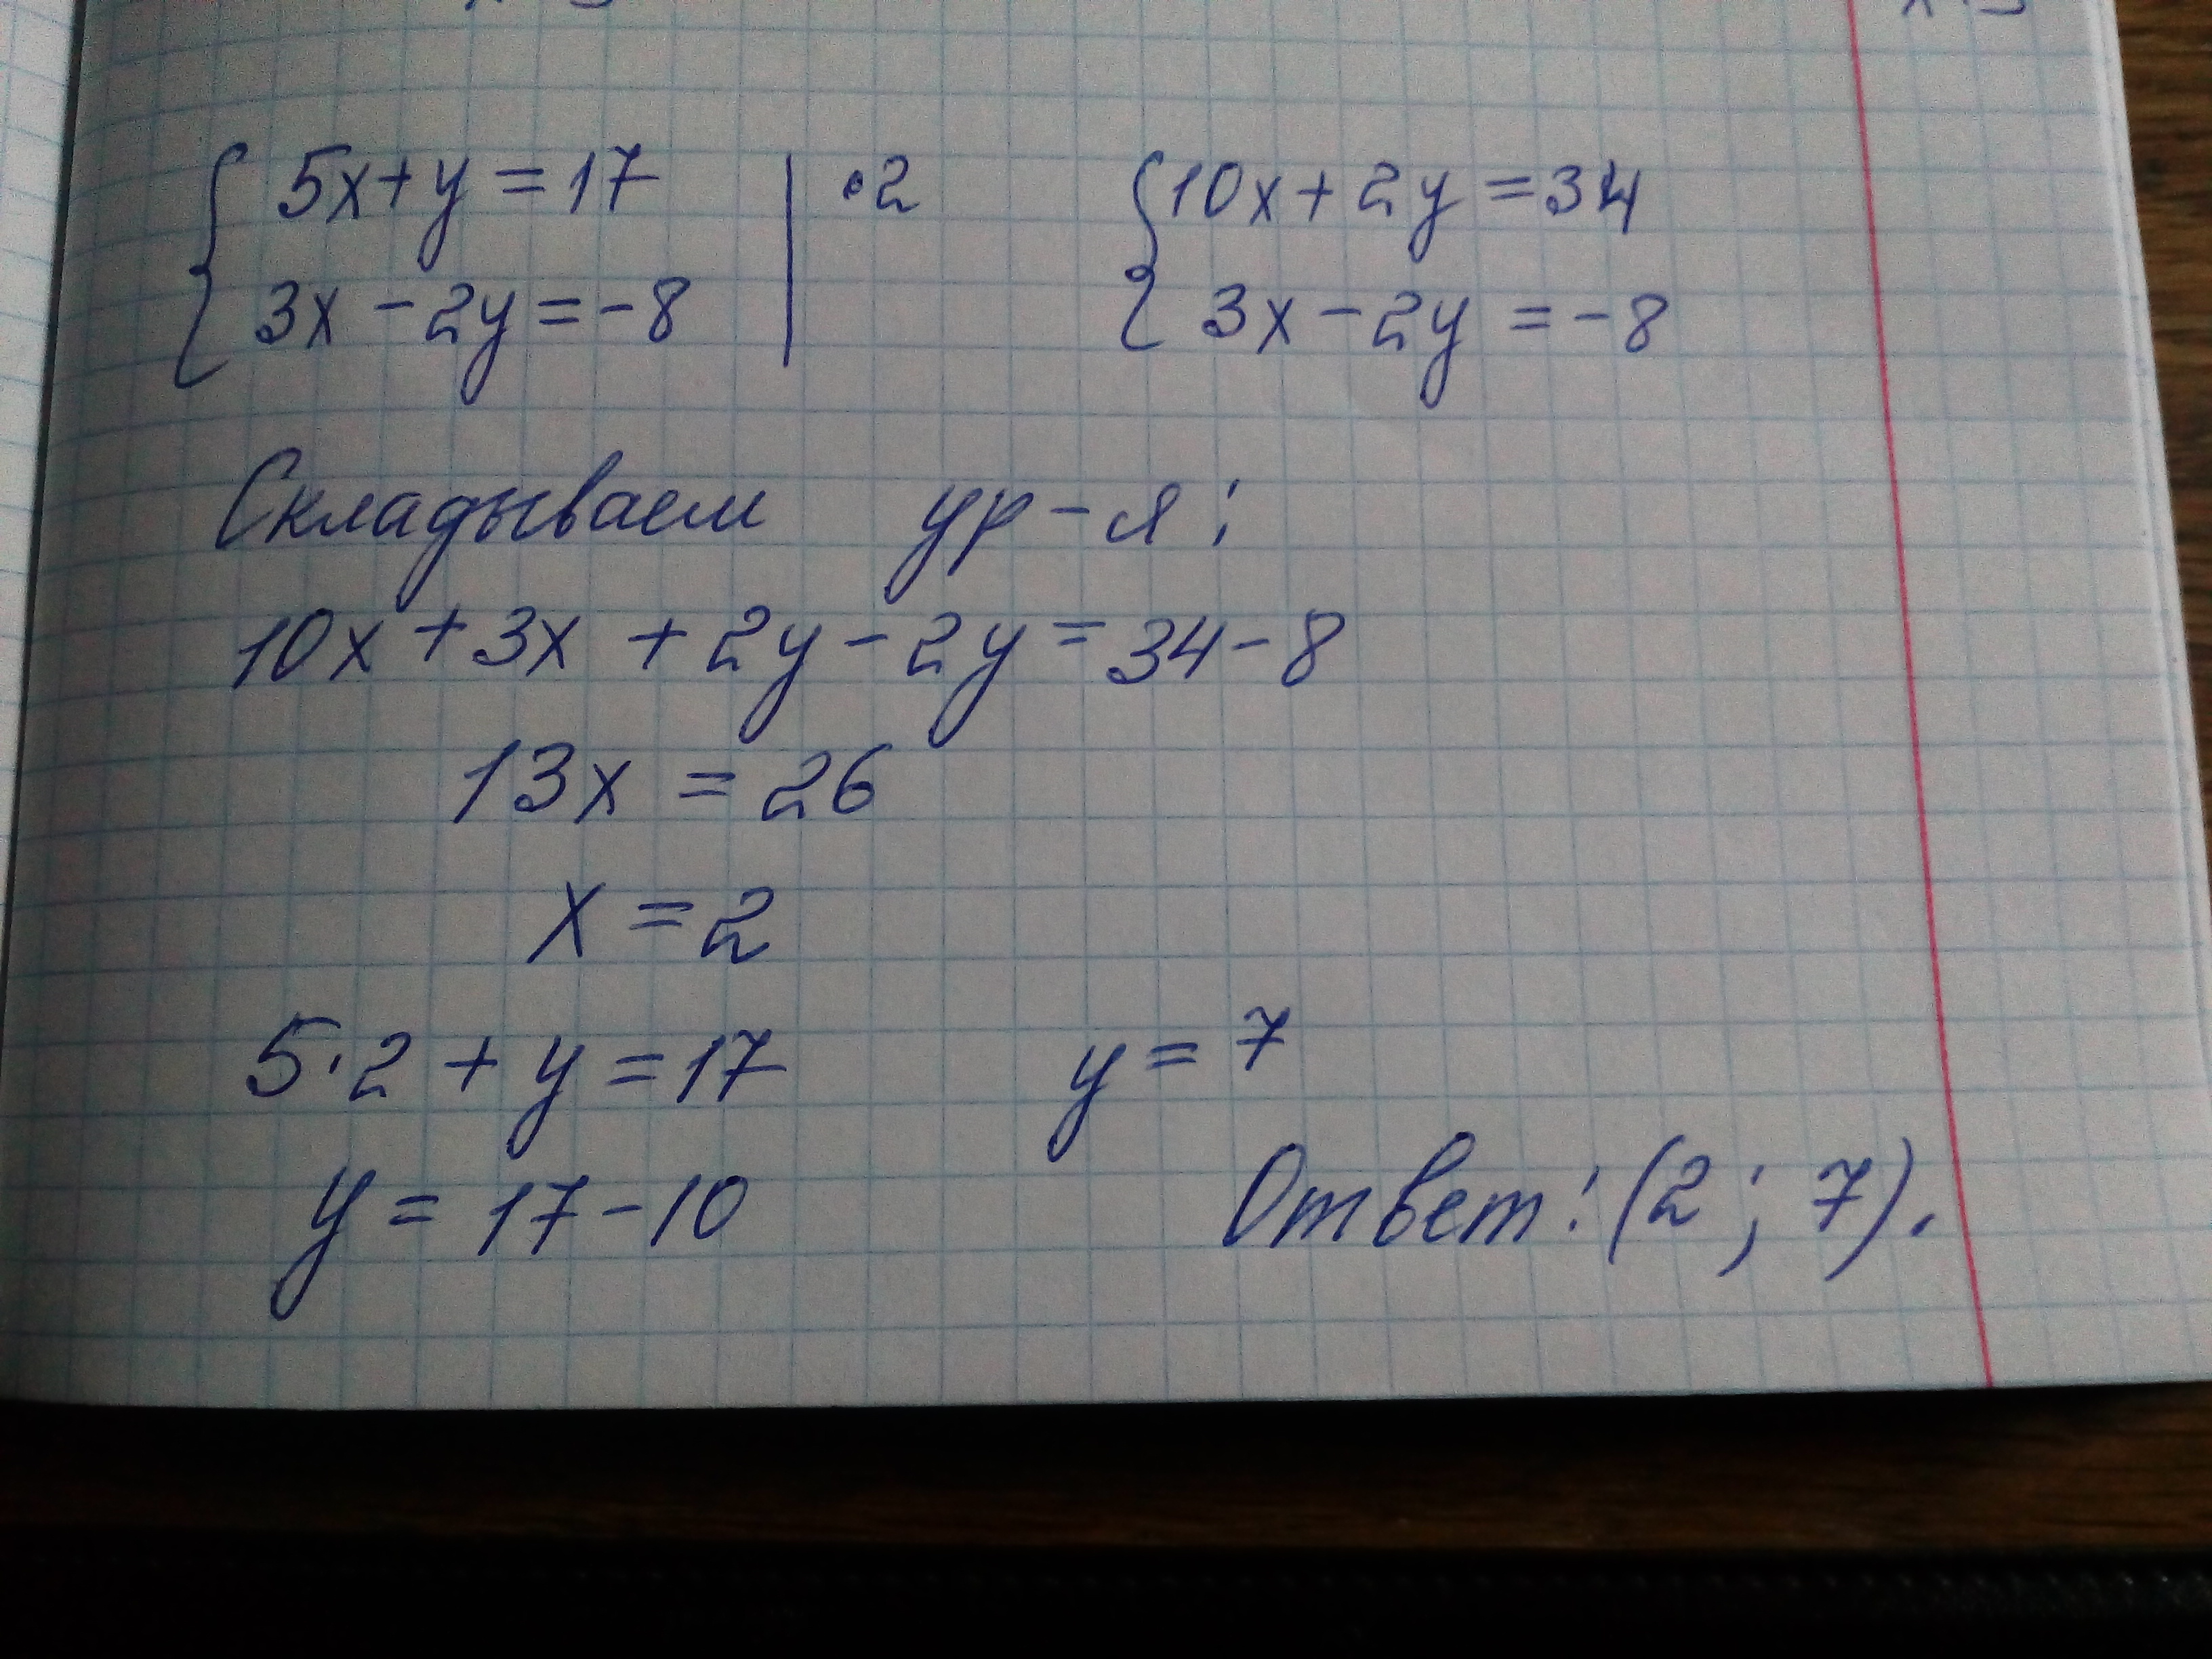 5x+y=17 | •2 10x+2y=34
3x-2y=-8 3x-2y=-8
Складываем ур-я:
10x+3x+2y-2y=34-8
13x=26
x=2
5·2+y=17 y=7
y=17-10 Ответ: (2; 7).